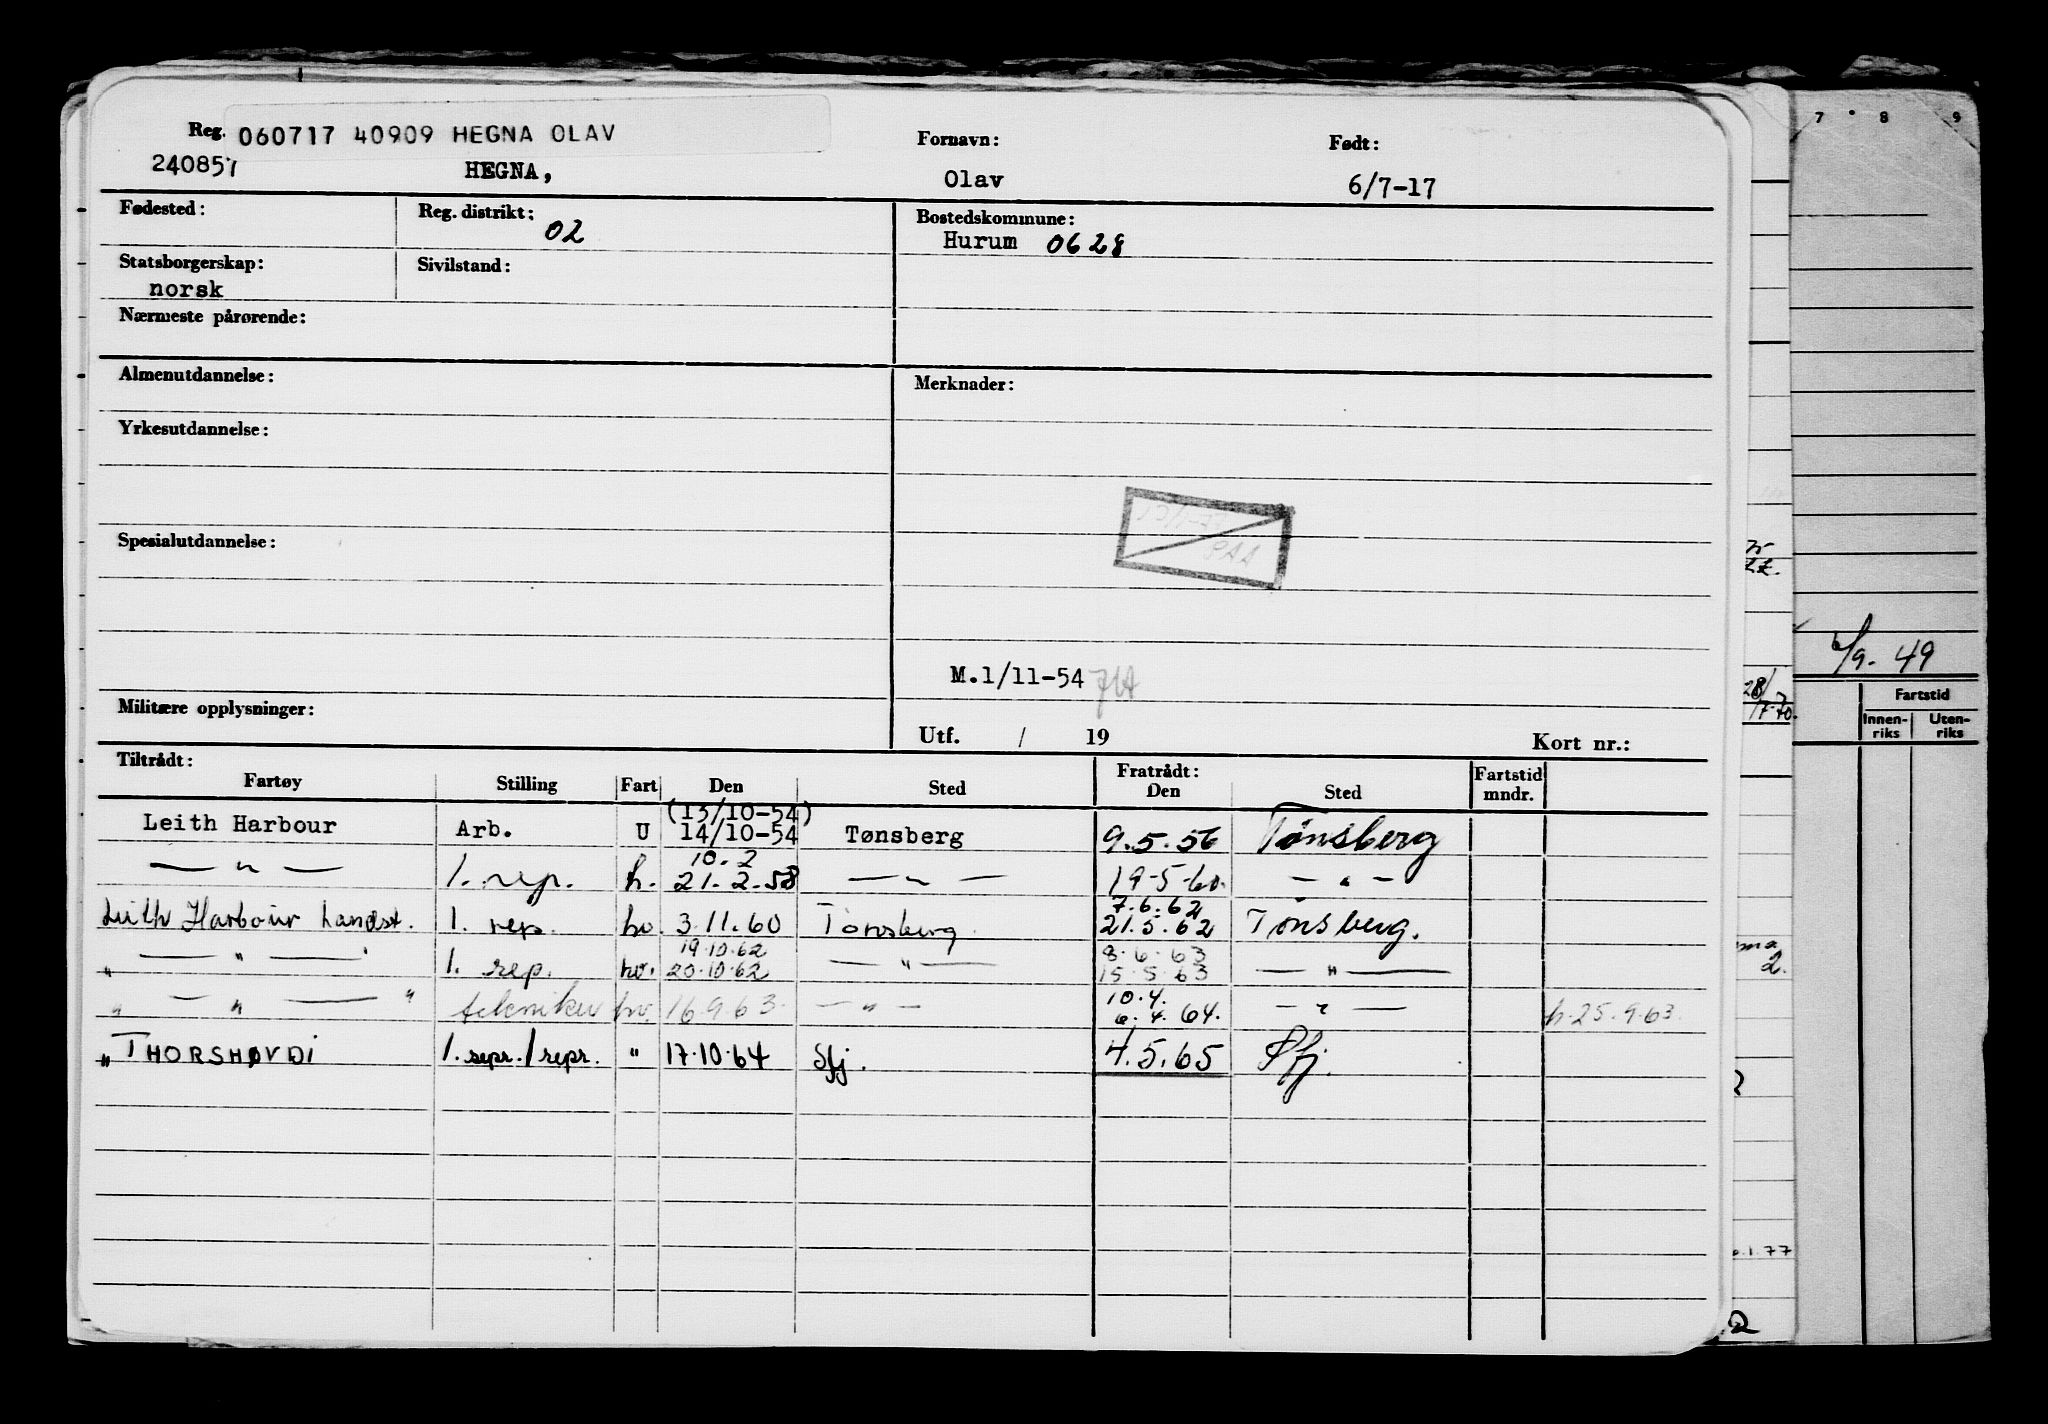 Reg. 060717 40909 HEGNA OLAV
240851 HEGNA,
Fornavn:
Olav
Født:
6/7-17
Fødested:
Reg. distrikt: 02
Bostedskommune:
Hurum 0628
Statsborgerskap:
norsk
Sivilstand:
Nærmeste pårørende:
Almenutdannelse:
Merknader:
Yrkesutdannelse:
Spesialutdannelse:
PAA
M.1/11-54
Militære opplysninger:
Utf. / 19
Kort nr.:
Tiltrådt:
Fartøy Stilling Fart Den Sted
Fratrådt:
Den Sted
Fartstid
mndr.
(13/10-54)
Leith Harbour Arb. U 14/10-54 Tønsberg 9.5.56 Tønsberg
10.2
— " — 1. rep. h. 21.2.58 — " — 19-5-60. — " —
7.6.62
Leith Harbour Landst. 1. rep. hv. 3.11.60 Tønsberg. 21.5.62 Tønsberg.
19.10.62 8.6.63
" — " — 1. rep. hv. 20.10.62 — " — 15.5.63 — " —
10.4.
" — " — " tekniker hv. 16.9.63. — " — 6.4.64. — " — h.25.9.63.
" THORSHØVDI 1. repr./1 repr. " 17.10.64 Sfj. 4.5.65 Sfj.
7 8 9
6/9. 49
Fartstid
Innen-
riks
Uten-
riks
28/
/7-70.
2.
.1.77
2